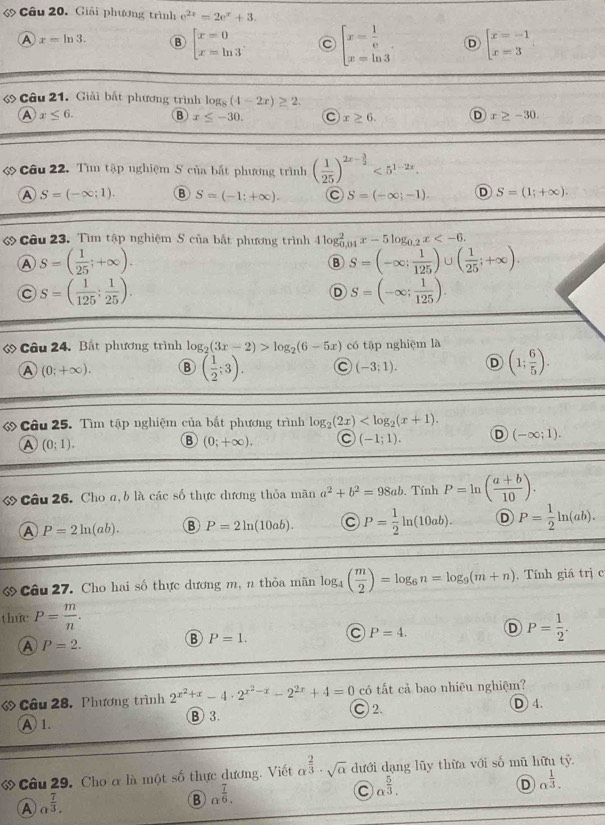 Câu 20. Giải phương trình e^{2x} = 2e^x + 3.
A x = ln 3. B [x = 0; x = ln 3. C [x = 1/e; x = ln 3. D [x = −1; x = 3.
Câu 21. Giải bất phương trình log_8 (4 − 2x) ≥ 2.
A x ≤ 6. B x ≤ −30. C x ≥ 6. D x ≥ −30.
Câu 22. Tìm tập nghiệm S của bất phương trình (1/25)^{2x − 3/2} < 5^{1−2x}.
A S = (−∞; 1). B S = (−1; +∞). C S = (−∞; −1). D S = (1; +∞).
Câu 23. Tìm tập nghiệm S của bất phương trình 4 log²_{0,04} x − 5 log_{0,2} x < −6.
A S = (1/25; +∞). B S = (−∞; 1/125) ∪ (1/25; +∞).
C S = (1/125; 1/25). D S = (−∞; 1/125).
Câu 24. Bất phương trình log_2(3x − 2) > log_2(6 − 5x) có tập nghiệm là
A (0; +∞). B (1/2; 3). C (−3; 1). D (1; 6/5).
Câu 25. Tìm tập nghiệm của bất phương trình log_2(2x) < log_2(x + 1).
A (0; 1). B (0; +∞). C (−1; 1). D (−∞; 1).
Câu 26. Cho a, b là các số thực dương thỏa mãn a² + b² = 98ab. Tính P = ln ((a + b)/10).
A P = 2 ln(ab). B P = 2 ln(10ab). C P = 1/2 ln(10ab). D P = 1/2 ln(ab).
Câu 27. Cho hai số thực dương m, n thỏa mãn log_4 (m/2) = log_6 n = log_9(m + n). Tính giá trị c
thức P = m/n.
A P = 2. B P = 1. C P = 4. D P = 1/2.
Câu 28. Phương trình 2^{x²+x} − 4 · 2^{x²−x} − 2^{2x} + 4 = 0 có tất cả bao nhiêu nghiệm?
A 1. B 3. C 2. D 4.
Câu 29. Cho α là một số thực dương. Viết α^{2/3} · √α dưới dạng lũy thừa với số mũ hữu tỷ.
A α^{7/3}. B α^{7/6}. C α^{5/3}. D α^{1/3}.